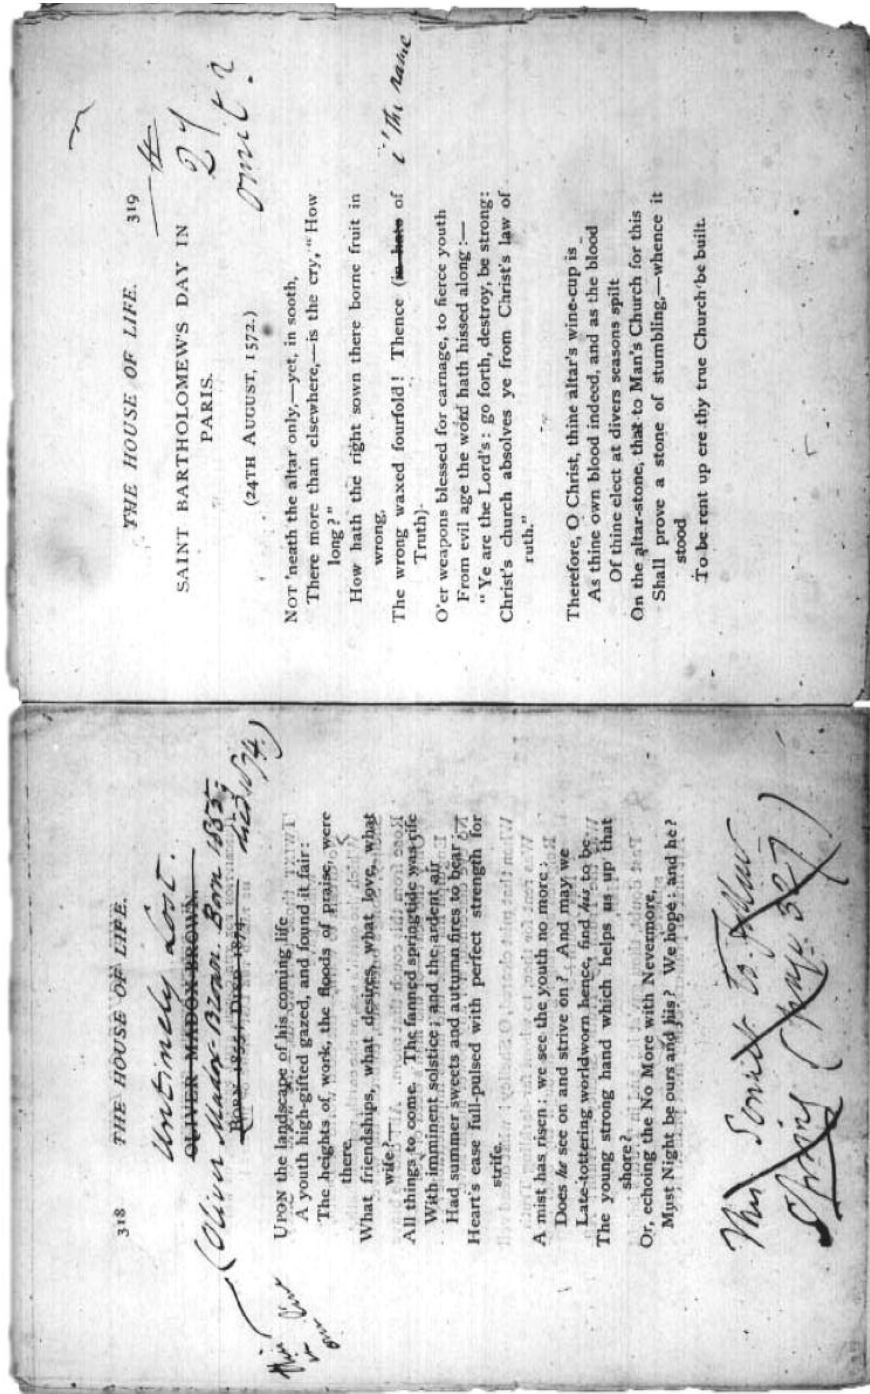 318 THE HOUSE OF LIFE.
Untimely Lost.
OLIVER MADOX BROWN.
BORN 1855; DIED 1874.
(Oliver Madox Brown. Born 1855;
died 1874.)
This
one
UPON the landscape of his coming life
A youth high-gifted gazed, and found it fair:
The heights of work, the floods of praise, were
there.
What friendships, what desires, what love, what
wife?—
All things to come. The fanned springtide was rife
With imminent solstice; and the ardent air
Had summer sweets and autumn fires to bear;—
Heart's ease full-pulsed with perfect strength for
strife.
A mist has risen: we see the youth no more:
Does he see on and strive on? And may we
Late-tottering worldworn hence, find his to be
The young strong hand which helps us up that
shore?
Or, echoing the No More with Nevermore,
Must Night be ours and his? We hope: and he?
This Sonnet to follow
Spring (page 327)
THE HOUSE OF LIFE. 319
SAINT BARTHOLOMEW'S DAY IN
PARIS.
omit?
(24TH AUGUST, 1572.)
NOT 'neath the altar only,—yet, in sooth,
There more than elsewhere,—is the cry, "How
long?"
How hath the right sown there borne fruit in
wrong,
The wrong waxed fourfold! Thence (in hate of
i' the name
Truth)
O'er weapons blessed for carnage, to fierce youth
From evil age the word hath hissed along:—
"Ye are the Lord's: go forth, destroy, be strong:
Christ's church absolves ye from Christ's law of
ruth."
Therefore, O Christ, thine altar's wine-cup is
As thine own blood indeed, and as the blood
Of thine elect at divers seasons spilt
On the altar-stone, that to Man's Church for this
Shall prove a stone of stumbling,—whence it
stood
To be rent up ere thy true Church be built.